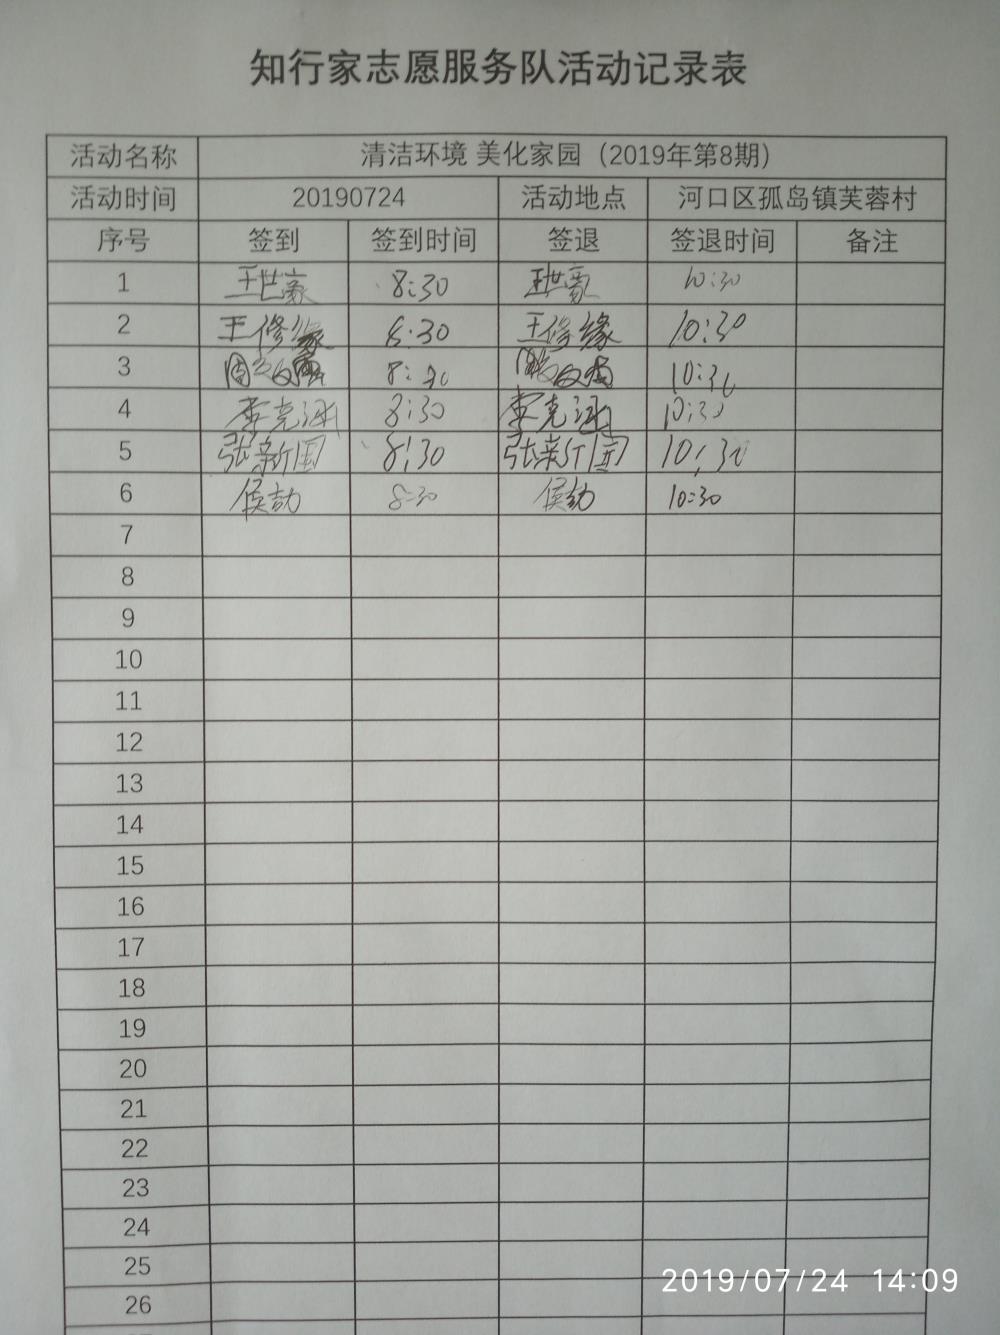 知行家志愿服务队活动记录表
活动名称 清洁环境 美化家园（2019年第8期）
活动时间 20190724 活动地点 河口区孤岛镇芙蓉村
序号 签到 签到时间 签退 签退时间 备注
1 王世豪 8:30 王世豪 10:30
2 王修缘 8:30 王修缘 10:30
3 8:30 10:30
4 李克涵 8:30 李克涵 10:30
5 张新国 8:30 张新国 10:30
6 8:30 10:30
7
8
9
10
11
12
13
14
15
16
17
18
19
20
21
22
23
24
25
26
2019/07/24 14:09